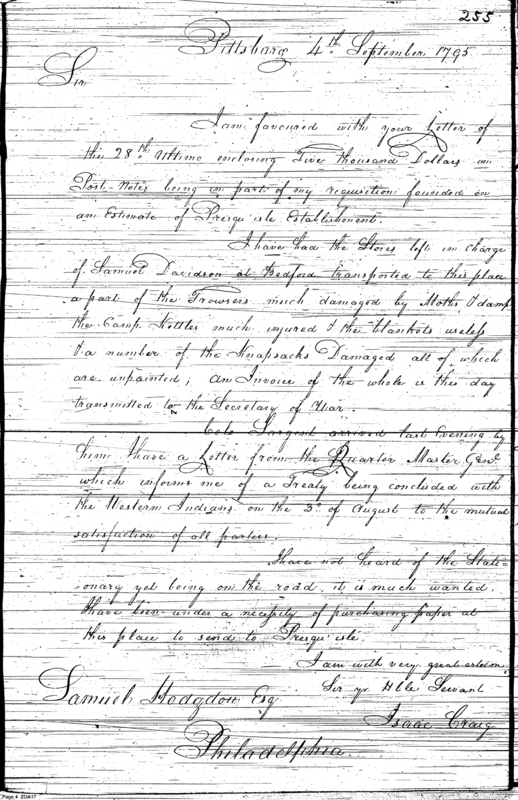 255
Pittsburg 4th September 1795
Sir
I am favoured with your Letter of
the 28th Ultimo enclosing Five thousand Dollars in
Post-Notes being in part of my requisition founded on
an Estimate of Presqu'isle Establishment.
I have had the Stores left in charge
of Samuel Davidson at Bedford transported to this place
a part of the Trowsers much damaged by Moths & damp
the Camp Kettles much injured & the blankets useless
& a number of the Knapsacks Damaged all of which
are unpainted; an Invoice of the whole is this day
transmitted to the Secretary of War.
Colo Sargent arrived last Evening by
him I have a Letter from the Quarter Master Genl
which informs me of a Treaty being concluded with
the Western Indians on the 3d of August to the mutual
satisfaction of all parties.
I have not heard of the Stati-
onary yet being on the road, it is much wanted.
I have been under a necessity of purchasing paper at
this place to send to Presqu'isle.
I am with very great esteem
Sir yr Hble Servant
Isaac Craig
Samuel Hodgdon Esq
Philadelphia
Page 4 ZOA17